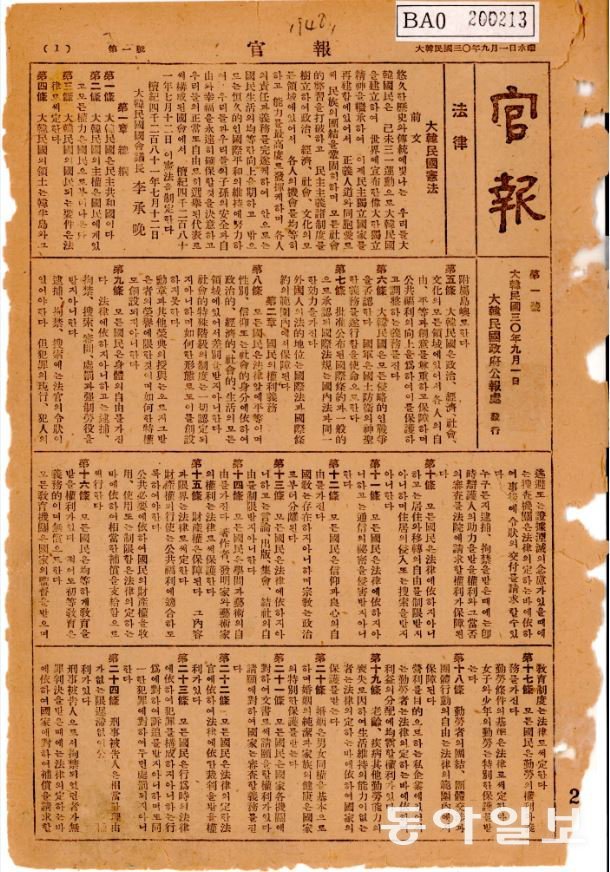 1948.
BA0 200213
大韓民國三〇年九月一日水曜
官報
第一號
(1)
官報
第一號
大韓民國三〇年九月一日
大韓民國政府公報處 發行
法律
大韓民國憲法
前文
悠久한歷史와傳統에빛나는 우리들大
韓民國은 己未三一運動으로大韓民國
을建立하여 世界에宣布한偉大한獨立
精神을繼承하여 이제民主獨立國家를
再建함에있어서 正義人道와同胞愛로
써 民族의團結을鞏固히하며 모든社會
的弊習을打破하고 民主主義諸制度를
樹立하여政治、經濟、社會、文化의모
든領域에있어서 各人의機會를均等히
하고 能力을最高度로發揮케하며 各人
의責任과義務를完遂케하여 안으로는
國民生活의均等한向上을期하고 밖으
로는恒久的인國際平和의維持에努力하
여 우리들과우리들의子孫의安全과自
由와幸福을永遠히確保할것을決議하고
우리들의正當또自由로히選擧된代表로
써構成된國會에서 檀紀四千二百八十
一年七月十二日이憲法을制定한다
檀紀四千二百八十一年七月十二日
大韓民國國會議長 李承晩
第一章 總綱
第一條 大韓民國은民主共和國이다
第二條 大韓民國의主權은國民에게있
고모든權力은國民으로부터나온다
第三條 大韓民國의國民되는要件은法
律로써定한다
第四條 大韓民國의領土는韓半島와그
附屬島嶼로한다
第五條 大韓民國은政治、經濟、社會、
文化의모든領域에있어서各人의自
由、平等과創意를尊重하고保障하며
公共福利의向上을爲하여이를保護하
고調整하는義務를진다
第六條 大韓民國은모든侵略的인戰爭
을否認한다 國軍은國土防衛의神聖
한義務를遂行함을使命으로한다
第七條 批准公布된國際條約과一般的
으로承認된國際法規는國內法과同一
한効力을가진다
外國人의法的地位는國際法과國際條
約의範圍內에서保障된다
第二章 國民의權利義務
第八條 모든國民은法律앞에平等이며
性別、信仰또는社會的身分에依하여
政治的、經濟的、社會的、生活의모든
領域에있어서差別을받지아니한다
社會的特殊階級의制度는一切認定되
지아니하며如何한形態로도이를創設
하지못한다
動章과其他榮典의授與는오로지그받
은者의榮譽에限한것이며如何한特權
도創設되지아니한다
第九條 모든國民은身體의自由를가진
다 法律에依하지아니하고는逮捕、
拘禁、搜索、審問、處罰과强制勞役을
받지아니한다
逮捕、拘禁、搜索에는法官의令狀이
있어야한다 但犯罪의現行、犯人의
逃避또는證據湮滅의念慮가있을때에
는搜査機關은法律의定하는바에依하
여事後에令狀의交付를請求할수있다
누구든지逮捕、拘禁을받은때에는卽
時辯護人의助力을받을權利와그當否
의審査를法院에請求할權利가保障된
다
第十條 모든國民은法律에依하지아니
하고는居住와移轉의自由를制限받지
아니하며住居의侵入또는搜索을받지
아니한다
第十一條 모든國民은法律에依하지아
니하고는通信의祕密을侵害받지아니
한다
第十二條 모든國民은信仰과良心의自
由를가진다
國敎는存在하지아니하며宗敎는政治
로부터分離된다
第十三條 모든國民은法律에依하지아
니하고는言論、出版、集會、結社의自
由를制限받지아니한다
第十四條 모든國民은學問과藝術의自
由를가진다 著作者、發明家와藝術家
의權利는法律로써保護한다
第十五條 財產權은保障된다 그內容
과限界는法律로써定한다
財產權의行使는公共福利에適合하도
록하여야한다
公共必要에依하여國民의財產權을收
用、使用또는制限함은法律의定하는
바에依하여相當한補償을支給함으로
써行한다
第十六條 모든國民은均等하게敎育을
받을權利가있다 적어도初等敎育은
義務的이며無償으로한다
모든敎育機關은國家의監督을받으며
敎育制度는法律로써定한다
第十七條 모든國民은勤勞의權利와義
務를가진다
勤勞條件의基準은法律로써定한다
女子와少年의勤勞는特別한保護를받
는다
第十八條 勤勞者의團結、團體交涉과
團體行動의自由는法律의範圍內에서
保障된다
營利를目的으로하는私企業에있어서
는勤勞者는法律의定하는바에依하여
利益의分配에均霑할權利가있다
第十九條 老齡、疾病其他勤勞能力의
喪失로因하여生活維持의能力이없는
者는法律의定하는바에依하여國家의
保護를받는다
第二十條 婚姻은男女同權을基本으로
하며婚姻의純潔과家族의健康은國家
의特別한保護를받는다
第二十一條 모든國民은國家各機關에
對하여文書로써請願을할權利가있다
請願에對하여國家는審査할義務를진
다
第二十二條 모든國民은法律의定한法
官에依하여法律에依한裁判을받을權
利가있다
第二十三條 모든國民은行爲時의法律
에依하여犯罪를構成하지아니하는行
爲에對하여訴追를받지아니하며또同
一한犯罪에對하여두번處罰되지아니
한다
第二十四條 刑事被告人은相當한理由
가없는限遲滯없이公
利가있다
刑事被告人으로서拘禁되었던者가無
罪判決을받은때에는法律의定하는바
에依하여國家에對하여補償을請求할
2
동아일보